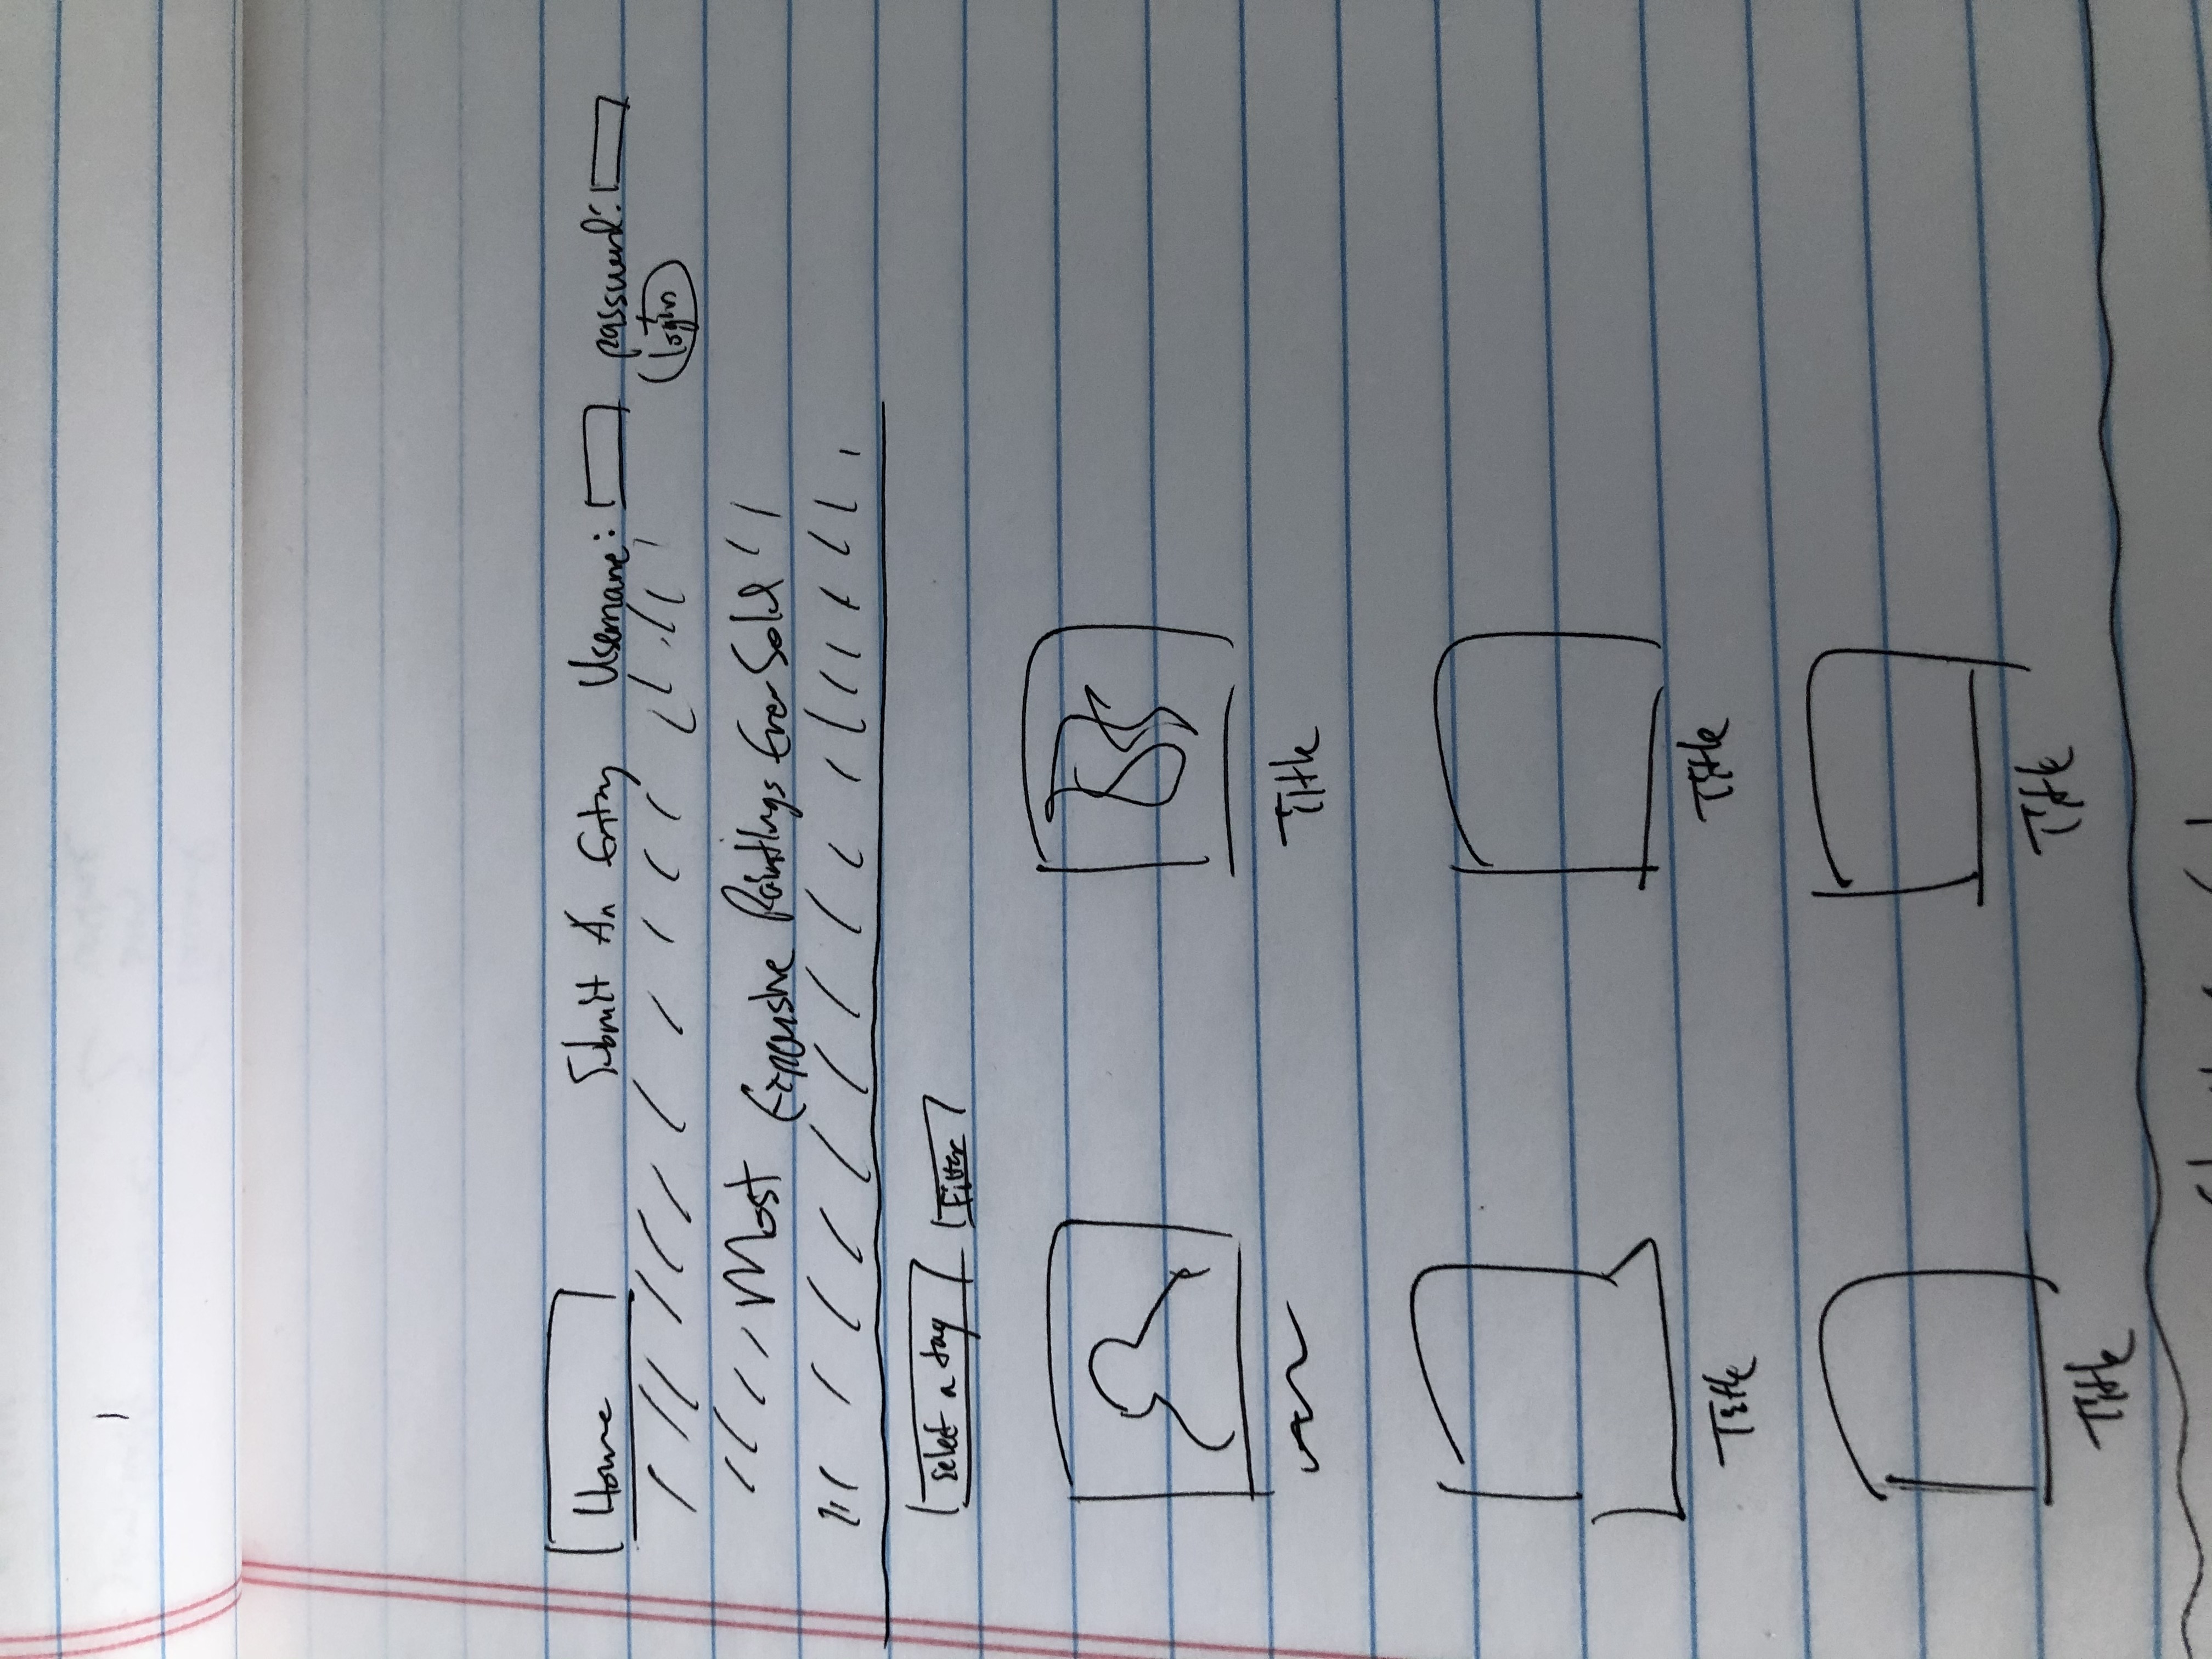 Home Submit An Entry Username: password:
login
Most Expensive Paintings Ever Sold
Select a tag Filter
Title
Title Title
Title Title